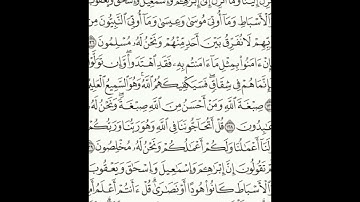 نزل إلينا وما أنزل إلى إبراهيم وإسمعيل وإسحق ويعقوب
الأسباط وما أوتي موسى وعيسى وما أوتي النبيون من
بهم لا نفرق بين أحد منهم ونحن له مسلمون
إن ءامنوا بمثل ما ءامنتم به فقد اهتدوا وإن تولوا
إنما هم في شقاق فسيكفيكهم الله وهو السميع العليم
صبغة الله ومن أحسن من الله صبغة ونحن له
عبدون قل أتحاجوننا في الله وهو ربنا وربكم
لنا أعملنا ولكم أعملكم ونحن له مخلصون
م تقولون إن إبرهيم وإسمعيل وإسحق ويعقوب
الأسباط كانوا هودا أو نصرى قل ءأنتم أعلم أم